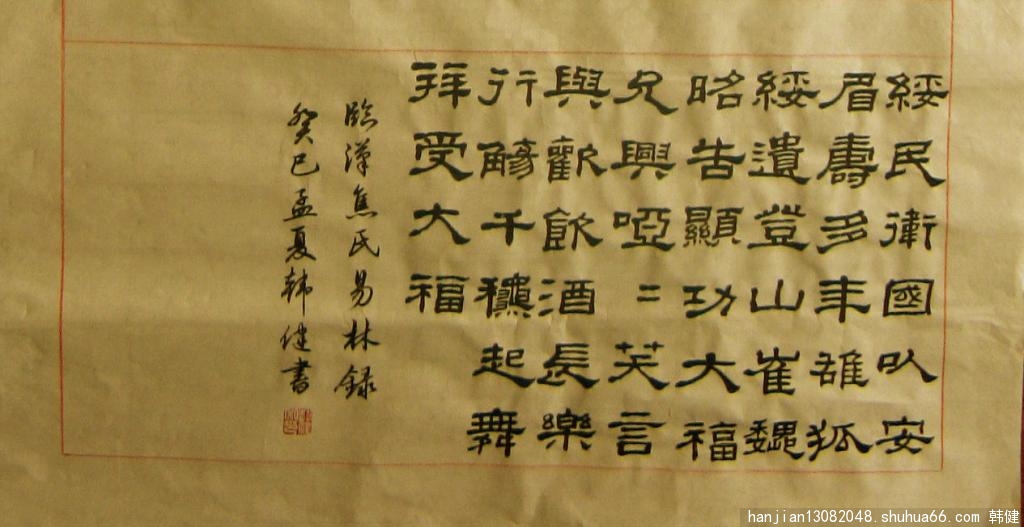 綏民衛國以安
眉壽多年雄狐
綏遺登山崔巍
昭告顯功大福
允興啞〻笑言
與歡飲酒長樂
行觴千起舞
拜受大福
臨漢焦氏易林録
癸巳孟夏韩健書
hanjian13082048.shuhua66.com 韩健